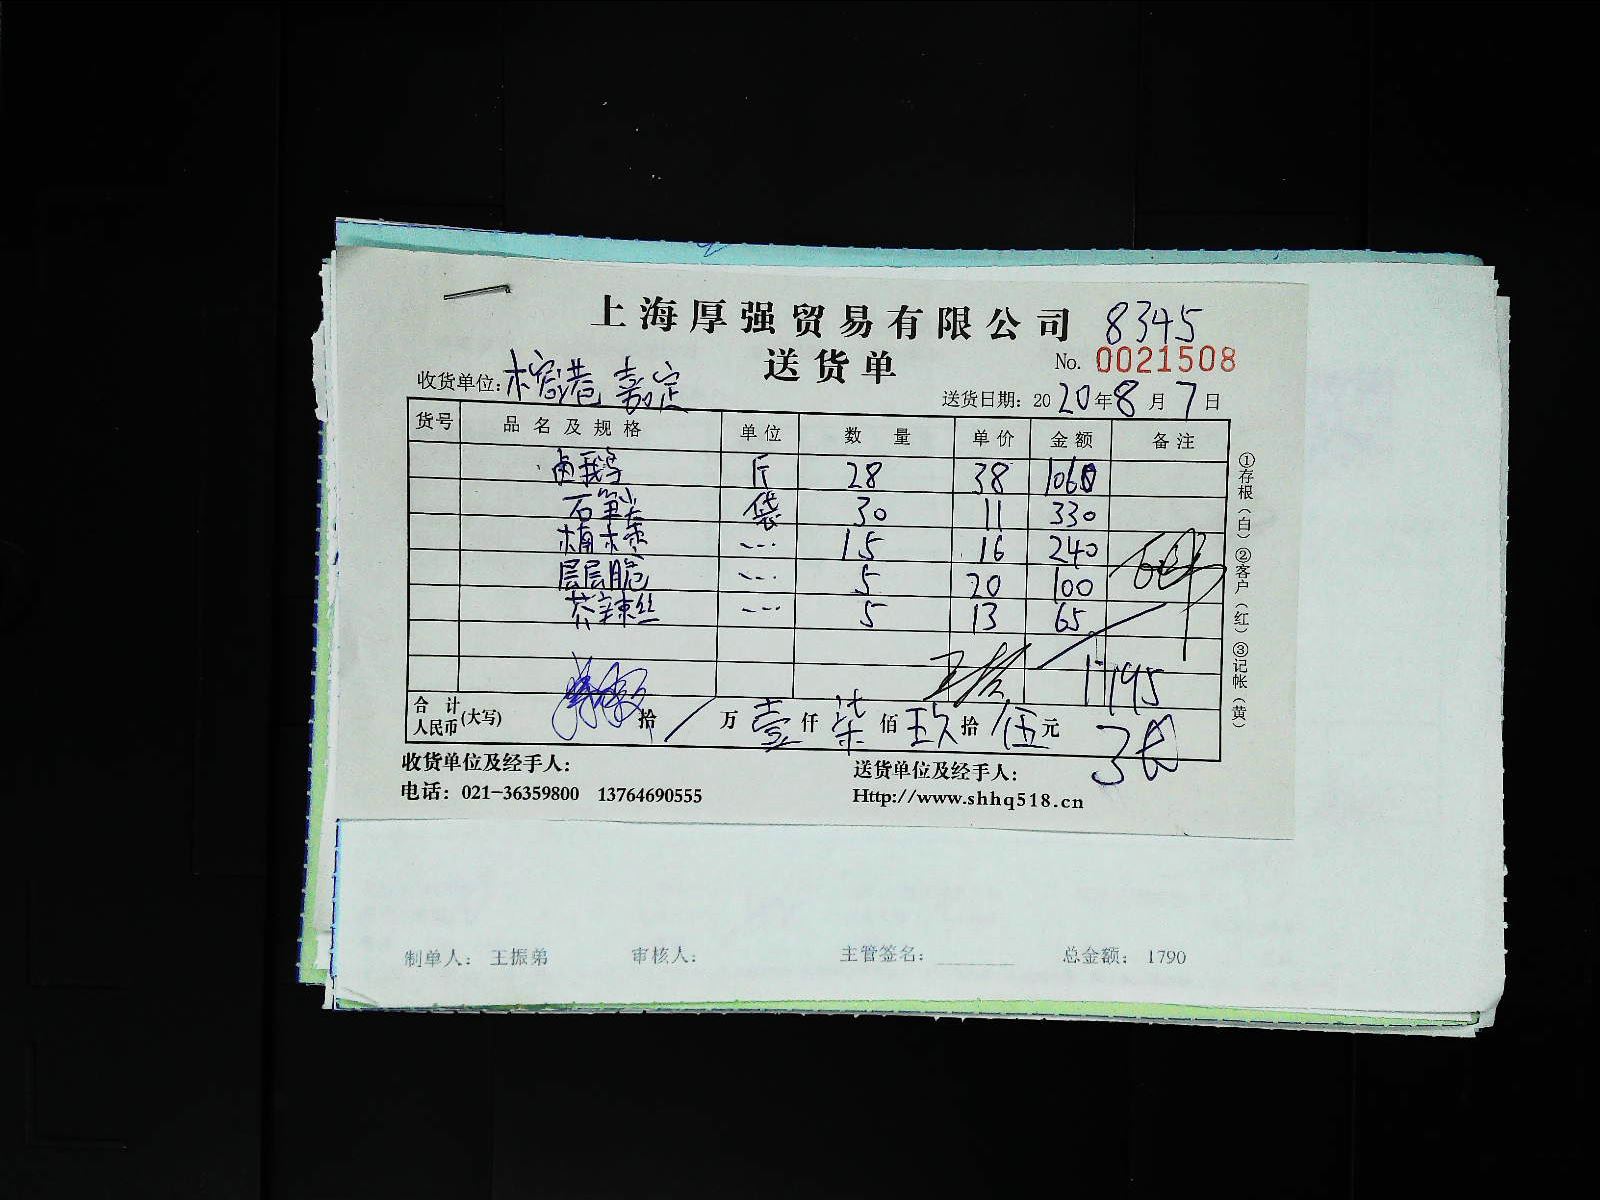 上海厚强贸易有限公司 8345
送货单 No. 0021508
收货单位：榕港 嘉定 送货日期：20 20年8月7日
货号 品名及规格 单位 数量 单价 金额 备注
卤鹅 斤 28 38 1060
石笋尖 袋 30 11 330
楠木枣 --- 15 16 240
层层脆 --- 5 20 100
芥辣丝 --- 5 13 65
1795
合计人民币(大写) 拾 / 万 壹 仟 柒 佰 玖 拾 伍 元
收货单位及经手人： 送货单位及经手人：
电话：021-36359800 13764690555 Http://www.shhq518.cn
①存根（白）②客户（红）③记帐（黄）
制单人： 王振弟 审核人： 主管签名： 总金额： 1790